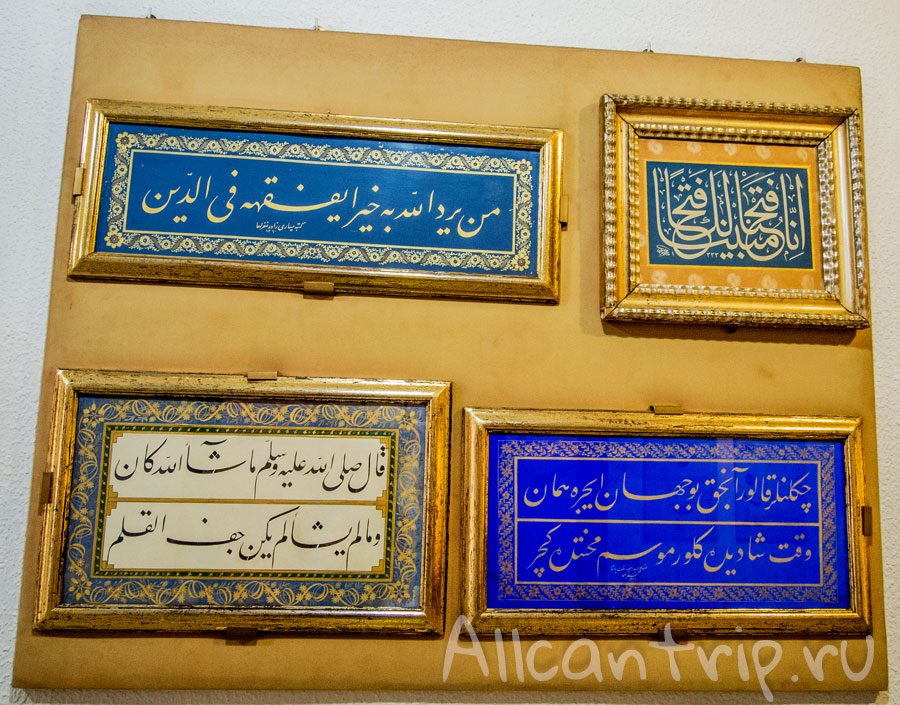 من يرد الله به خيرا يفقهه فى الدّين
إنّا فتحنا لك فتحا مبينا
قال صلى الله عليه وسلّم ماشاالله كان
ومالم يشالم يكن جف القلم
قالور آنجق بو جهان ايچره همان
وقت شاديده كلور موسم محنتده كچر
Allcantrip.ru